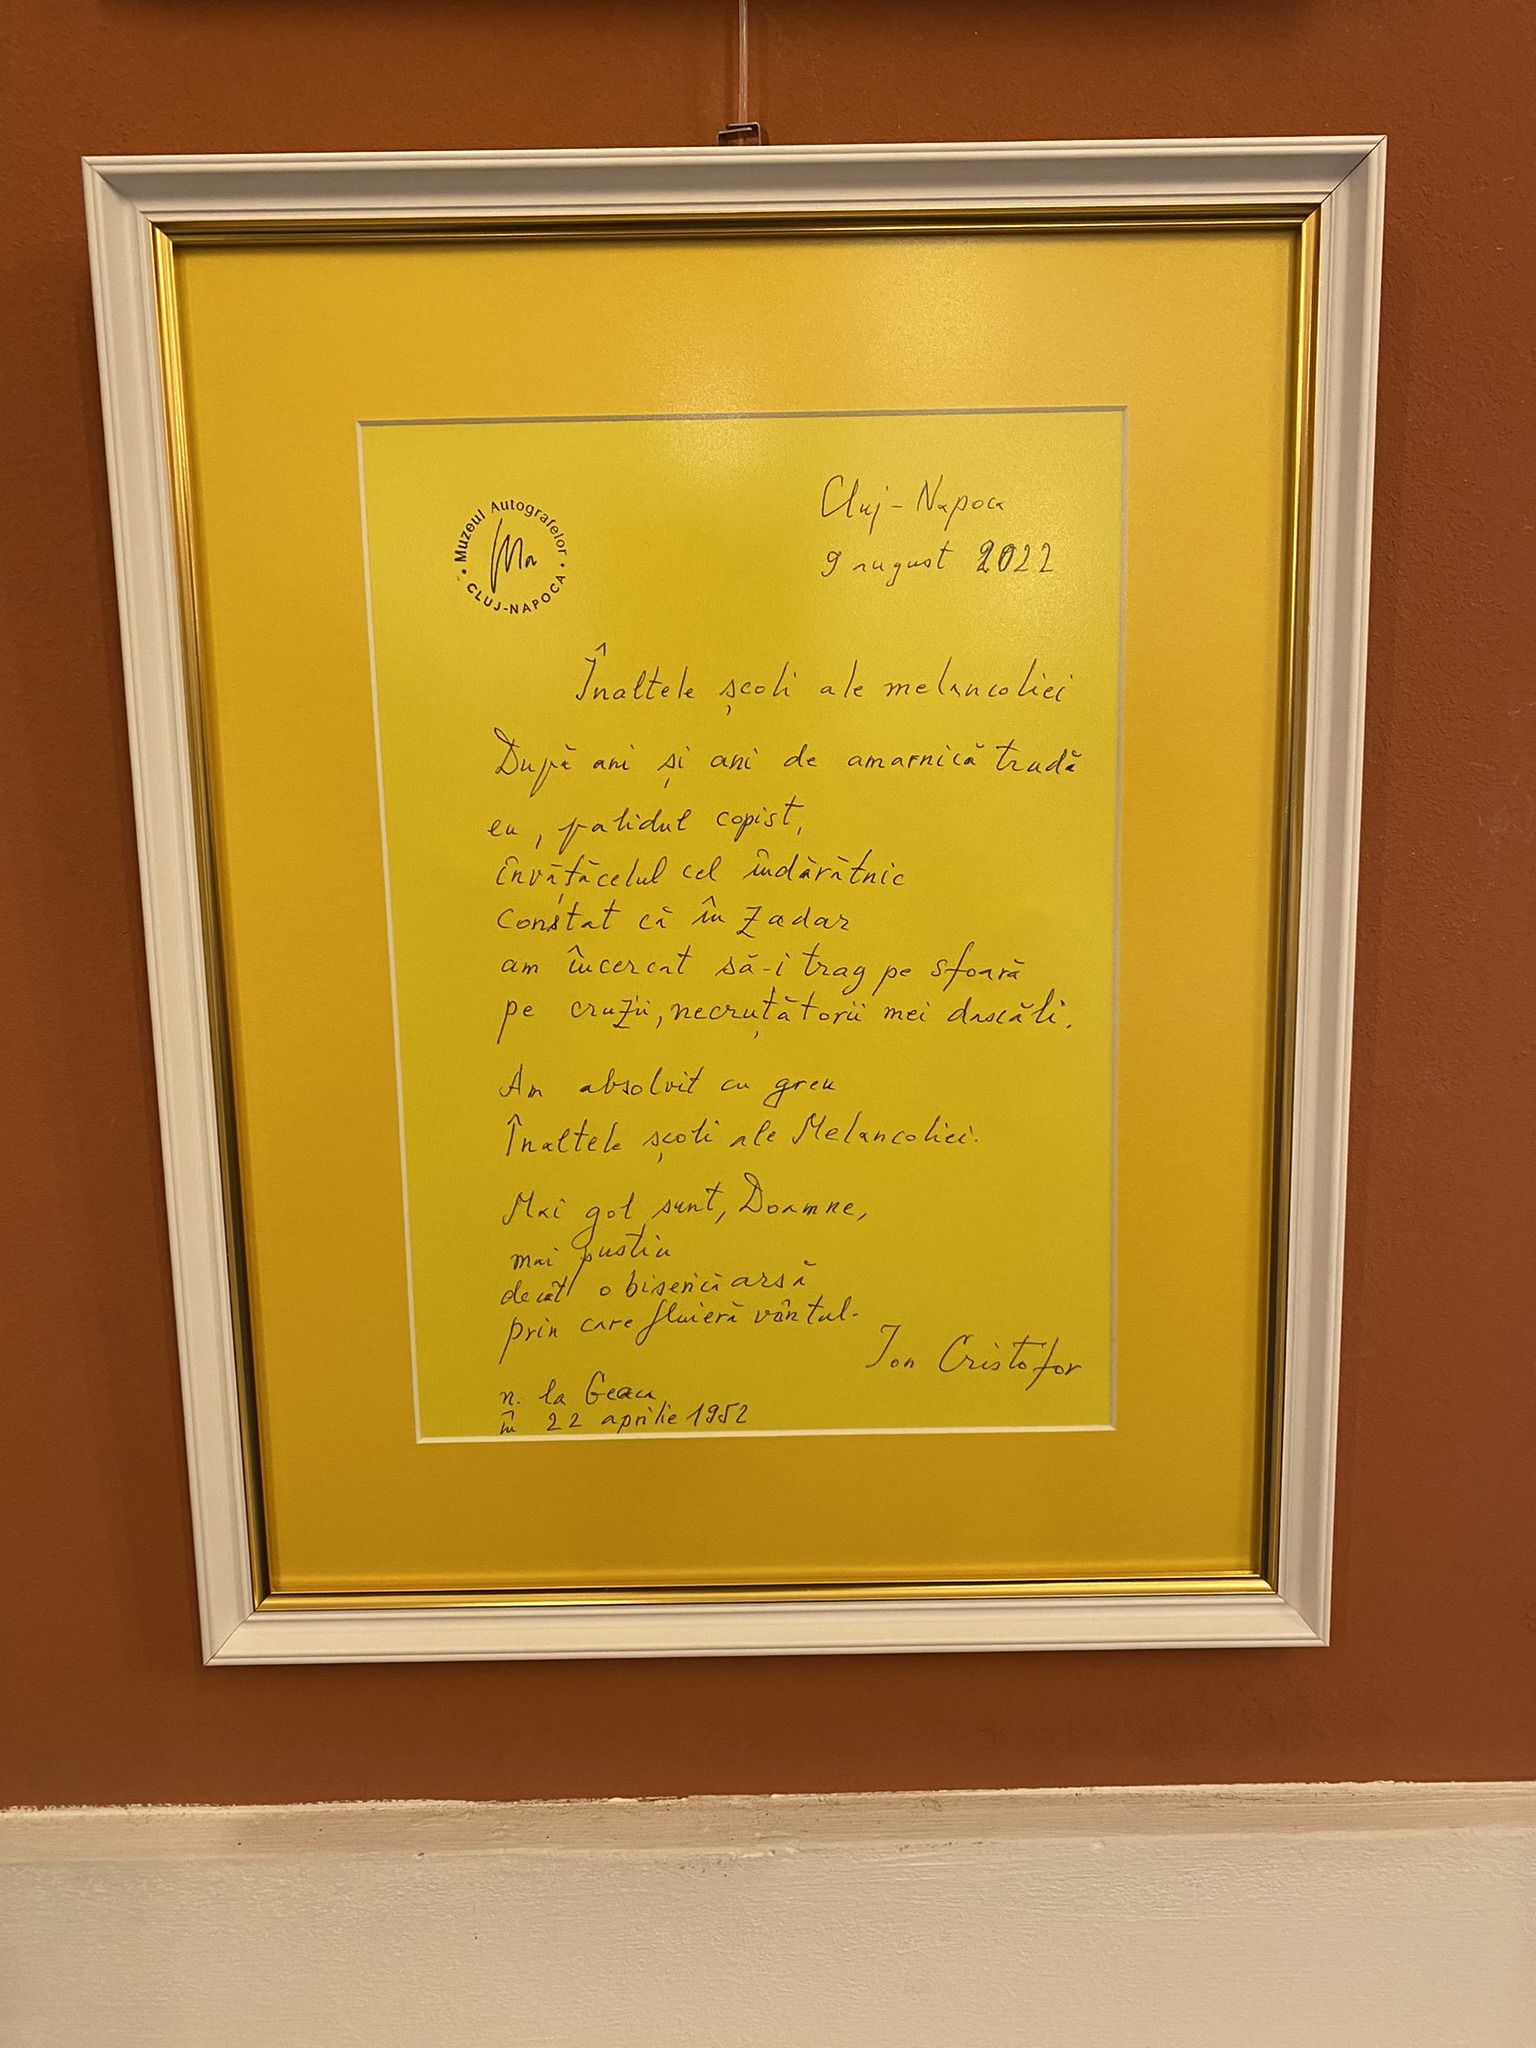 Muzeul Autografelor
Ma
CLUJ-NAPOCA
Cluj-Napoca
9 august 2022
Înaltele școli ale melancoliei
După ani și ani de amarnică trudă
eu, palidul copist,
învățăcelul cel îndărătnic
constat că în zadar
am încercat să-i trag pe sfoară
pe cruzii, necruțătorii mei dascăli.
Am absolvit cu greu
Înaltele școli ale Melancoliei.
Mai gol sunt, Doamne,
mai pustiu
decât o biserică arsă
prin care fluieră vântul.
Ion Cristofor
n. la Geaca
în 22 aprilie 1952